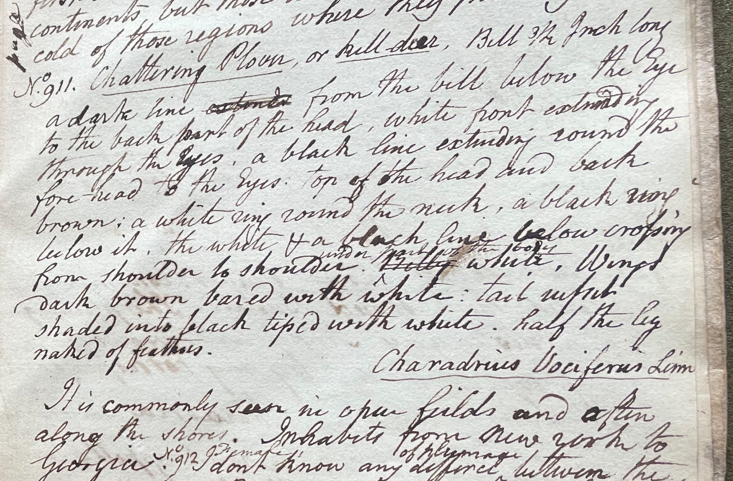 continents, but those
cold of those regions where they
No. 911. Chattering Plover, or kill-deer, Bill 3/4 Inch long
a dark line extends from the bill below the Eye
to the back part of the head, white front extending
through the Eyes, a black line extending round the
fore head to the Eyes: top of the head and back
brown: a white ring round the neck, a black ring
below it, the white & a black line below crossing
under parts of the body
from shoulder to shoulder. Belly white, Wings
dark brown bared with white: tail rufish
shaded into black tiped with white. half the leg
naked of feathers.
Charadrius Vociferus Linn
It is commonly seen in open feilds and often
along the shores. Inhabits from New york to
Georgia No. 912 I dont know any differce between the
female of plumage